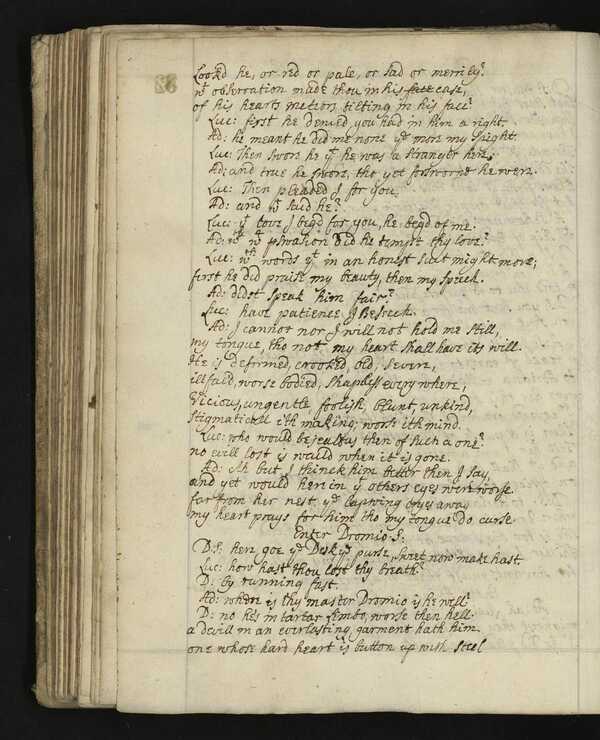 Look'd he, or red or pale, or sad or merriley?
wt observation made thou in his face case,
of his hearts meteors tilting in his face?
Luc: first he denied you had in him a right.
Ad: he meant he did me none ye more my spight.
Luc: Then swore he yt he was a stranger here,
Ad: and true he swore, tho yet forsworne he were.
Luc: Then pleaded I for you,
Ad: and wt said he?
Luc: yt love I begd for you, he begd of me.
Ad: wth wt perswation did he tempt thy love?
Luc: wth words yt in an honest sute might move;
first he did praise my beauty, then my speech.
Ad: didst speak him fair?
Luc: have patience I Beseech.
Ad: I cannot nor I will not hold me still,
my tongue, tho not my heart shall have its will.
He is deformed, crooked, old, severe,
illfac'd, worse bodied, shapeless every where,
Vicious, ungentle, foolish, blunt, unkind,
Stigmaticall ith making, worse ith mind.
Luc: who would be jealous then of such a one?
no evill lost is waild when it is gone.
Ad: Ah but I thinck him better then I say,
and yet would herein ye others eyes were worse.
far from her nest ye lapwing cryes away
my heart prays for him tho my tongue do curse
Enter Dromio S:
D:S: here goe ye Desk ye purse, sweet now make hast.
Luc: how hast thou lost thy breath?
D: by running fast.
Ad: where is thy master Dromio is he well?
D: no hes in tartar limbo, worse then hell.
a devill in an everlasting garment hath him
one whose hard heart is button up with steel